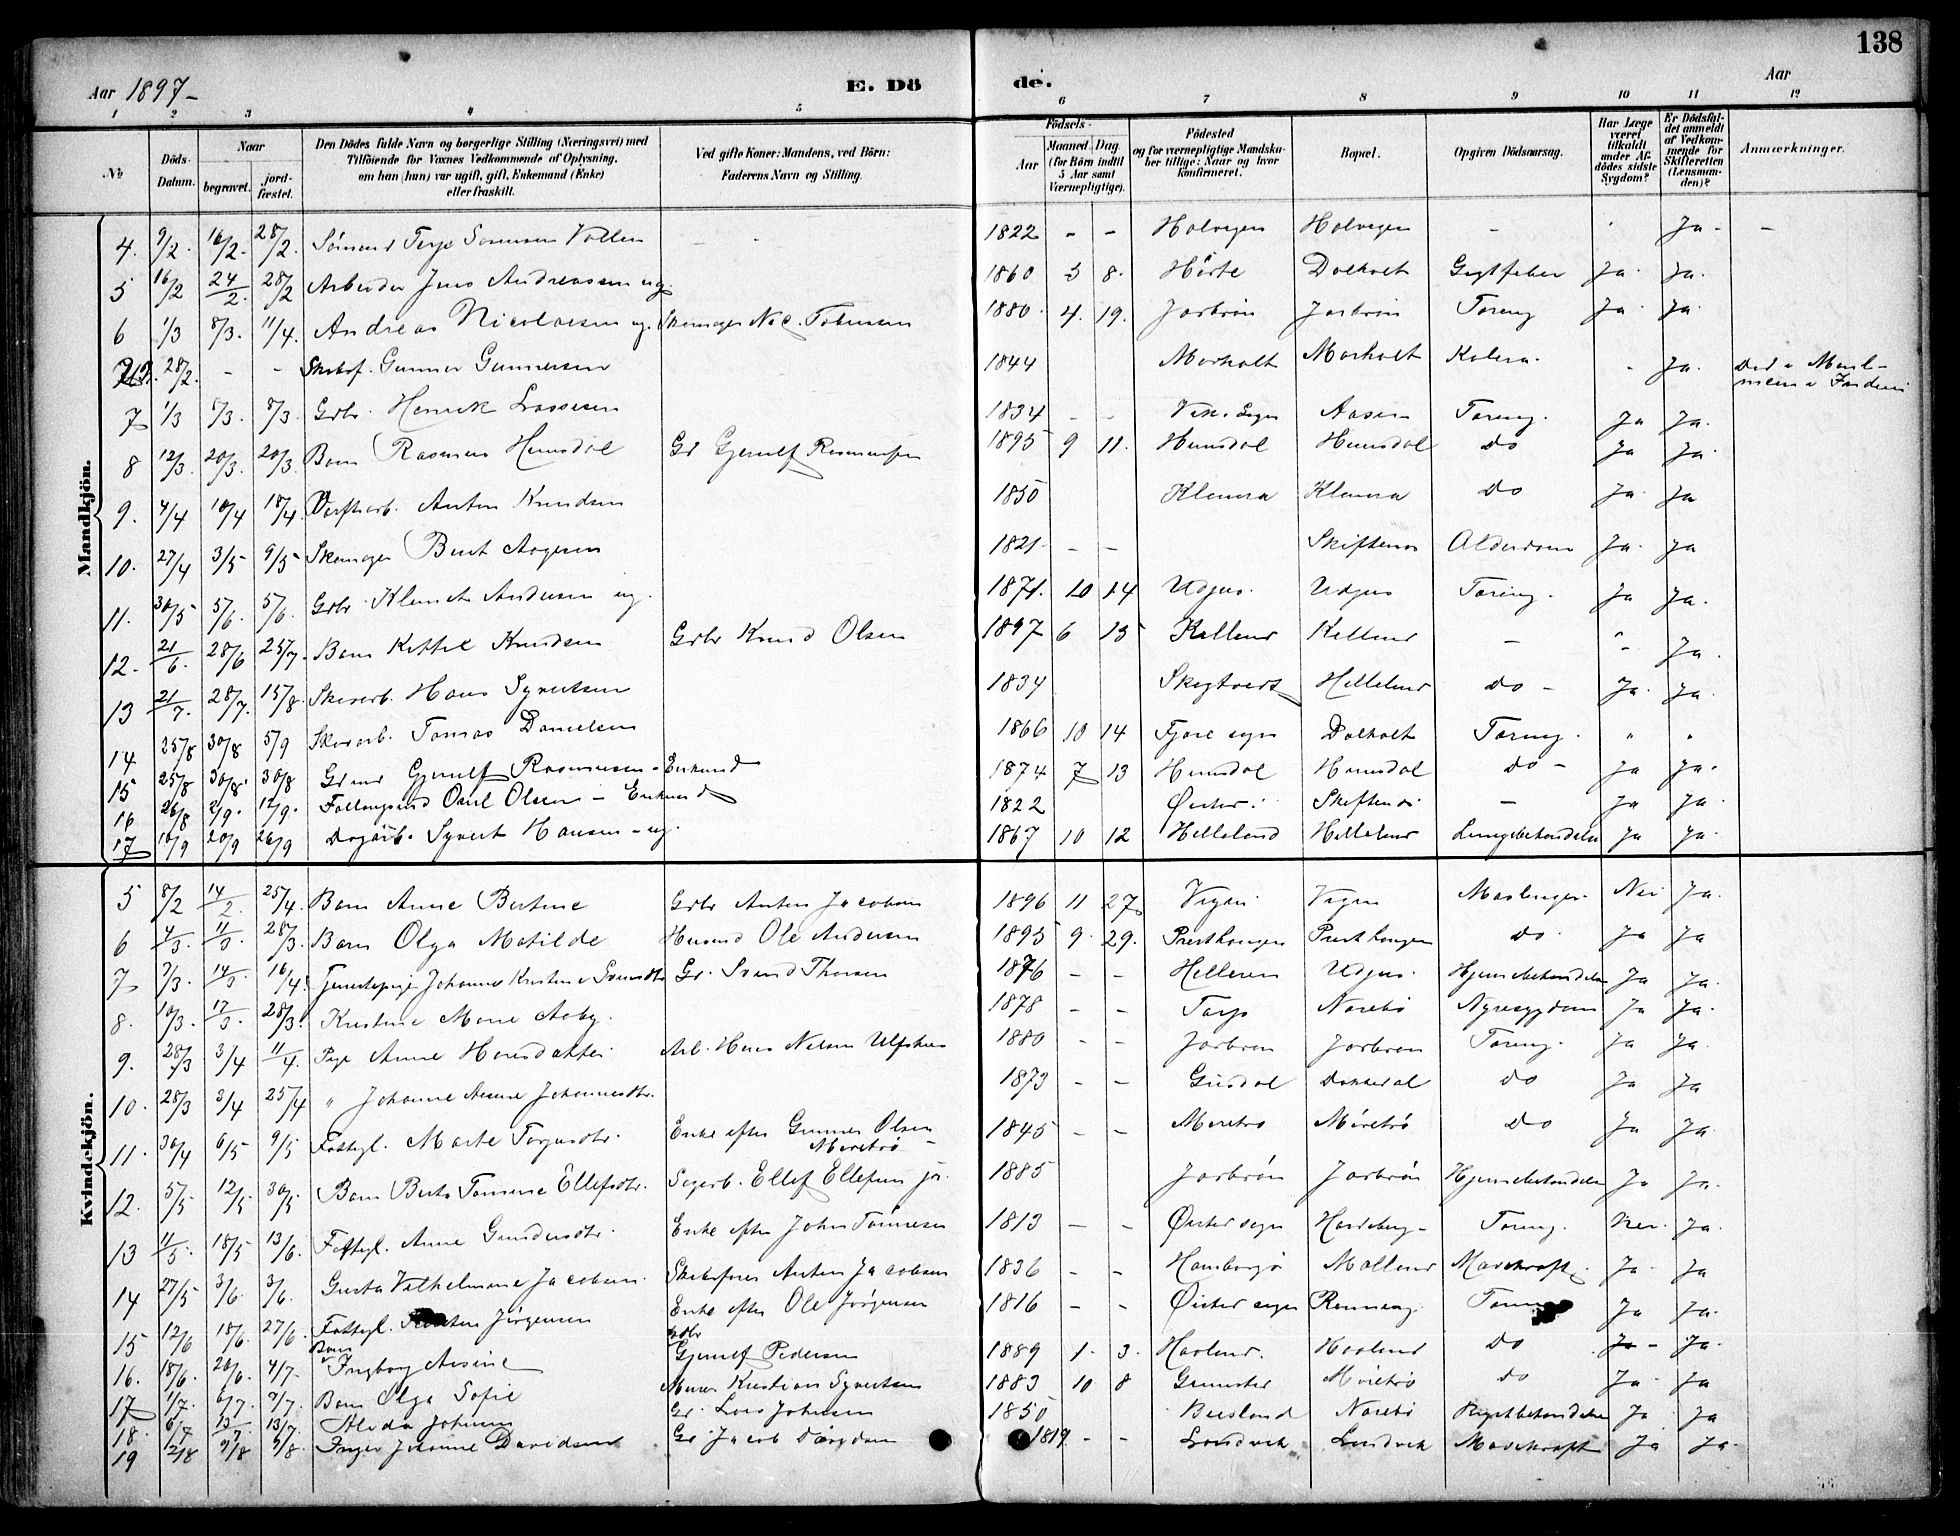 138
Aar 1897- E. Dö de. Aar
1 2 3 4 5 6 7 8 9 10 11 12
№ Döds-Datum. Naar begravet. jord-fæstet. Den Dödes fulde Navn og borgerlige Stilling (Næringsvei) med Tilföiende for Voxnes Vedkommende af Oplysning, om han (hun) var ugift, gift, Enkemand (Enke) eller fraskilt. Ved gifte Koner: Mandens, ved Börn: Faderens Navn og Stilling. Födsels- Aar Maaned Dag (for Börn indtil 5 Aar samt Værnepligtige). Födested og for værnepligtige Mandskaber tillige: Naar og hvor konfirmeret. Bopæl. Opgiven Dödsaarsag. Har Læge været tilkaldt under Afdödes sidste Sygdom? Er Dödsfaldet anmeldt af Vedkommende for Skifteretten (Lensmanden)? Anmærkninger.
Mandkjön.
4. 9/2. 16/2. 28/2. Sömand Terje Sorensen Vollen 1822 - - Holvegen Holvegen - Ja - -
5 16/2 24/2. 28/2 Arbeider Jens Andreassen ug. 1860 3 8. Hörte Dolholt Gigtfeber Ja. Ja.
6 1/3 8/3. 11/4. Andreas Nicolaisen ug. Skomager Nic. Tobiasen 1880. 4. 19. Jorbrön Jorbrön Tæring Ja. Ja.
28/2. - - Skibsf. Gunner Gunnersen 1844 Morholt Morholt Kolera. Ja.
7 1/3 8/3. 8/3. Gdbr. Henrik Lassesen 1834 - - Aasen Tæring. Ja Ja.
8 12/3. 20/3. 20/3. Barn Rasmus Hunsdal Gd Gjerulf Rasmussen 1895 9 11. Hunsdal Hunsdal Do Ja Ja.
9. 4/4 10/4 18/4. Værftarb. Anton Knudsen 1850 Klemra Klemra Do Ja. Ja
10. 27/4 3/5 9/5 Skomager Bent Aagesen 1821. - - Skiftenes Alderdom Ja. Ja
11. 30/5 5/6. 5/6. Gdbr. Klemet Andersen ug. 1871. 10 14 Udjus. Udjus Tæring. Ja Ja.
12. 21/6. 28/6 25/7. Barn Kittel Knudsen Gdbr Knud Olsen 1897 6 15 Kalleund Kalleund - - Ja.
13 21/7. 28/7. 15/8. Skovarb. Hans Syvertsen 1834 Skigtvedt Hellelund Do - Ja. Ja.
14 25/8 30/8 5/9 Skovarb. Tomas Danielsen 1866 10 14 Fjære sogn Dolholt Tæring. " "
15 25/8 30/8 30/8 Gdmd Gjerulf Rasmussen - Enkemd 1874 7 13 Hunsdal Hunsdal Do - Ja Ja.
16 26/8 2/9. 12/9. Fattigmand Ole Olsen - Enkemd 1822 Öiested Skiftenes - Ja Ja.
17 10/9 20/9 26/9 Dagarb. Syvert Hansen - ug. 1867 10 12 Helleland Hellelund Lungebetændelse Ja Ja.
Kvindekjön.
5 8/2 14/2. 25/4. Barn Anne Bertine Gdbr Anton Jacobsen 1896 11 27 Vigen Vigen Mæslinger. Nei Ja.
6 4/3. 11/3. 28/3. Barn Olga Matilde Husmd Ole Andersen 1895 9. 29. Presthaugen Presthaugen Do. Ja Ja
7 7/3. 14/3. 16/4. Tjenestepige Johanne Kristine Svendsdtr Gd. Svend Thorsen 1876 - - Helleren Udjus. Hjernebetændelse Ja Ja.
8. 10/3. 17/3. 28/3. Kristine Marie Aaby. 1878 - - Torp Narebö Nyresygdom Ja Ja.
9. 28/3 3/4 11/4. Pige Anne Hansdatter Arb. Hans Nilsen 1880 - - Jorbron Jorbron Tæring. Ja Ja.
10. 28/3 3/4 25/4 " Johanne Amine Johannesdtr. 1873 - - Dokkedal Do Ja Ja
11. 30/4 6/5 9/5 Fattigl. Marte Terjesdtr. Enke efter Gunner Olsen Möretrö - 1845 - - Möretrö Möretrö Do Ja Ja.
12. 5/5 12/5 30/5. Barn Berte Tomine Ellefsdtr. Sagarb. Ellef Ellefsen jr. 1885 Jorbrön Jorbrön Hjernebetændelse Ja Ja.
13 11/5. 18/5 13/6. Fattigl. Anne Gundersdtr. Enke efter John Tönnesen 1813 - - Öiested sogn Hardeberg - Tæring. Nei. Ja.
14 27/5 3/6. 3/6. Gusta Vilhelmine Jacobsen. Skibsförer Anton Jacobsen 1836 - - Homborgö Mollund Mavekræft Ja. Ja
15 12/6 18/6. 27/6. Fattigl. Jörgensen Enke efter Ole Jörgensen 1816 - - Öiested sogn Ja Ja.
16. 18/6. 20/6. 4/7 Barn Ingborg Arsine Gdbr Gjerulf Pedersen 1889 1. 3. Haalund. Haalund Do Ja - Ja.
17 1/7. 6/7. 7/7. Barn Olga Sofie Murer Kristian Syvertsen 1883 10 8 Möretrö Do Ja. Ja
18. 6/7 13/7 13/7 Alida Johnsen Gd. Lars Johnsen 1850 Beisland Narebö Brystbetændelse Ja. Ja
19 12/8 9/8 9/8. Inger Johanne Davidsen Gd. Jacob 1819. - - Landvik Landvik Mavekræft Ja Ja.